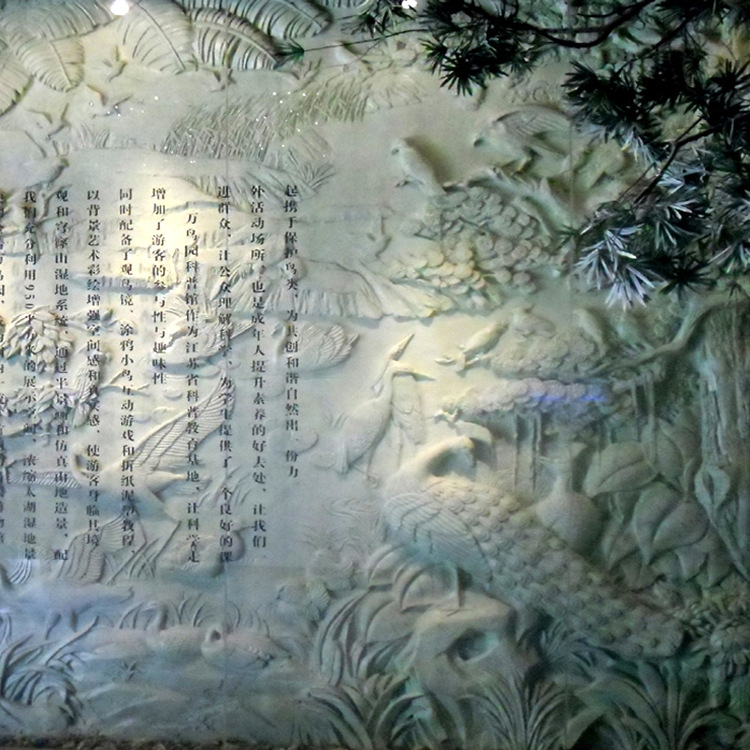 我们充分利用950平方米的展示空间，浓缩太湖湿地景
观和穹窿山湿地系统，通过半景画和仿真山地造景，配
以背景艺术彩绘增强空间感和真实感，使游客身临其境，
同时配备了观鸟镜、涂鸦小鸟互动游戏和折纸泥塑教程，
增加了游客的参与性与趣味性
万鸟园科普馆作为江苏省科普教育基地、让科学走
进群众、让公众理解科学、为学生提供了一个良好的课
外活动场所，也是成年人提升素养的好去处、让我们
起携手保护鸟类，为共创和谐自然出一份力